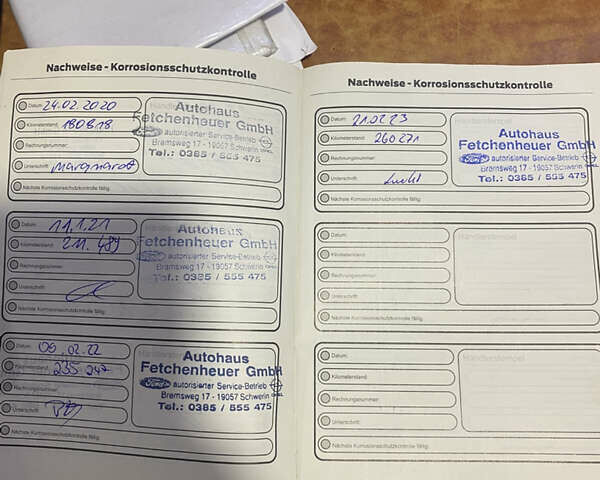 Nachweise - Korrosionsschutzkontrolle
Datum: 24.02.2020
Kilometerstand: 180818
Rechnungsnummer:
Unterschrift: Marquardt
Nächste Korrosionsschutzkontrolle fällig:
Autohaus
Fetchenheuer GmbH
Ford autorisierter Service-Betrieb
Bremsweg 17 - 19057 Schwerin
Tel.: 0385 / 555 475
Datum: 11.1.21
Kilometerstand: 211.489
Rechnungsnummer:
Unterschrift:
Nächste Korrosionsschutzkontrolle fällig:
Autohaus
Fetchenheuer GmbH
autorisierter Service-Betrieb
Bremsweg 17 - 19057 Schwerin
Tel.: 0385 / 555 475
Datum: 09.02.22
Kilometerstand: 235 247
Rechnungsnummer:
Unterschrift:
Nächste Korrosionsschutzkontrolle fällig:
Autohaus
Fetchenheuer GmbH
Ford autorisierter Service-Betrieb
Bremsweg 17 - 19057 Schwerin
Tel.: 0385 / 555 475
Nachweise - Korrosionsschutzkontrolle
Datum: 21.02.23
Kilometerstand: 260271
Rechnungsnummer:
Unterschrift:
Nächste Korrosionsschutzkontrolle fällig:
Autohaus
Fetchenheuer GmbH
Ford autorisierter Service-Betrieb
Bremsweg 17 - 19057 Schwerin
Tel.: 0385 / 555 475
Datum:
Kilometerstand:
Rechnungsnummer:
Unterschrift:
Nächste Korrosionsschutzkontrolle fällig:
Händlerstempel
Datum:
Kilometerstand:
Rechnungsnummer:
Unterschrift:
Nächste Korrosionsschutzkontrolle fällig:
Händlerstempel